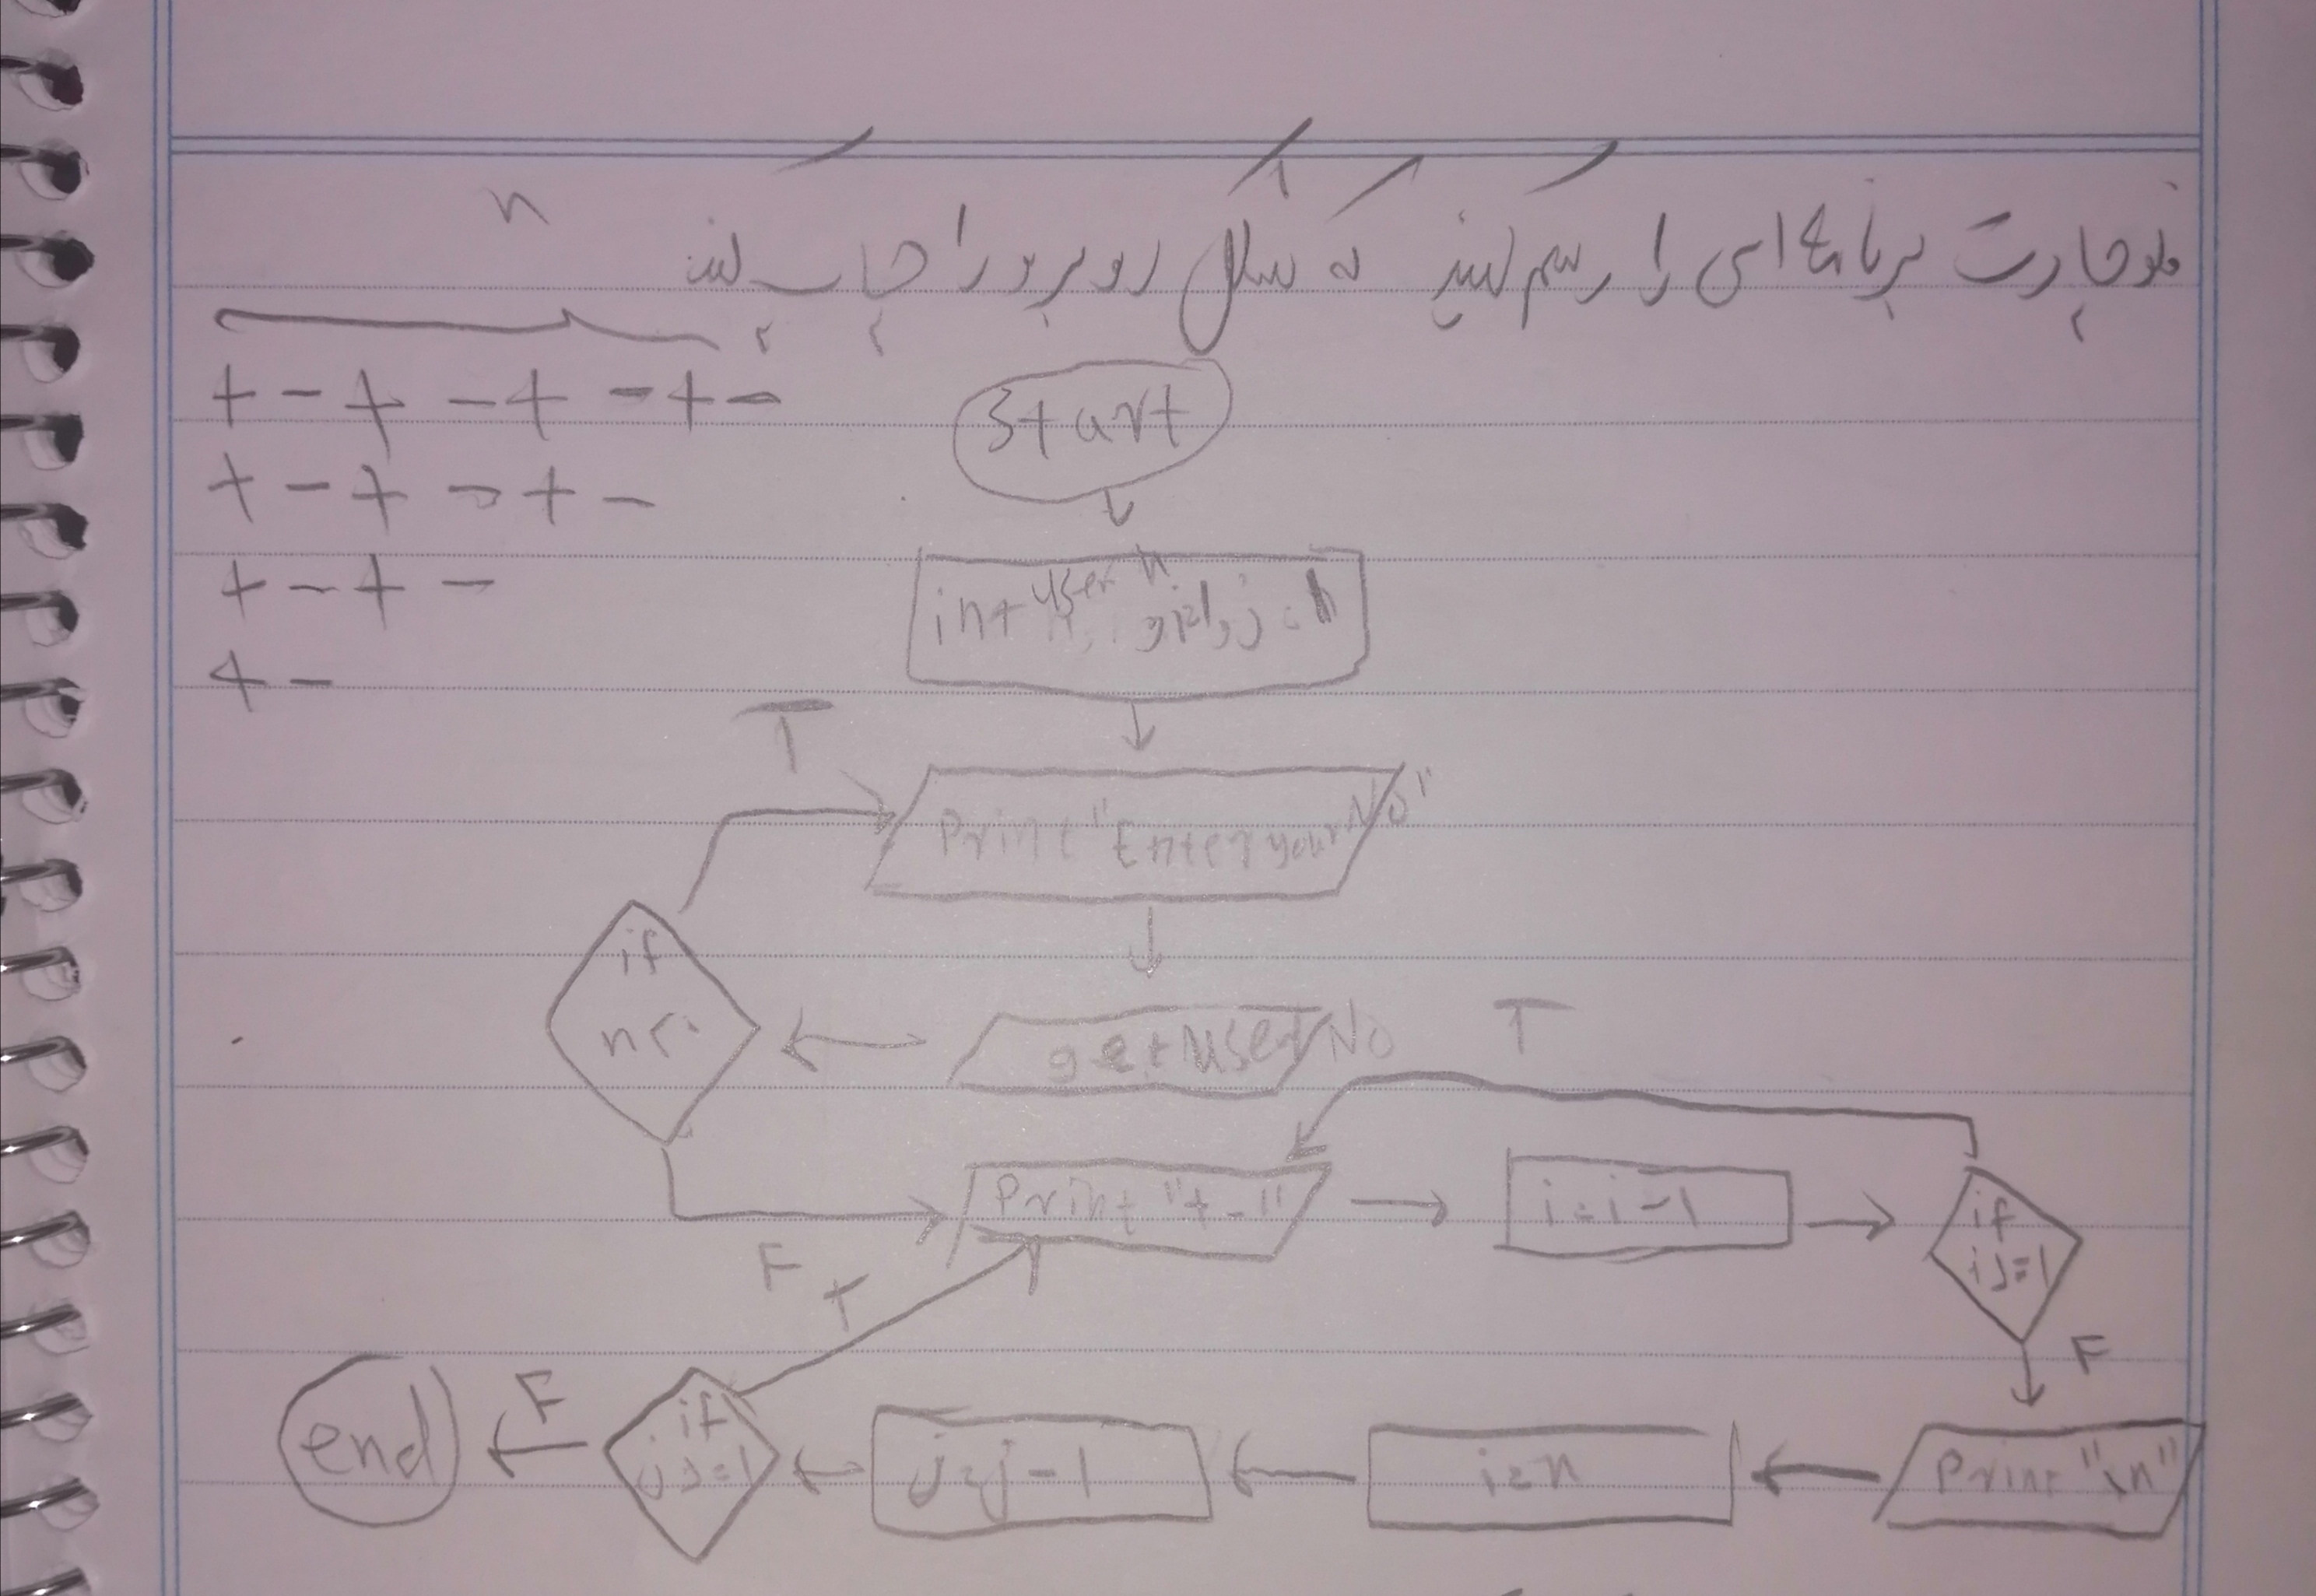 فلوچارت برنامه ای را رسم کنید که شکل روبرو را چاپ کند
n
+ - + - + - + -
+ - + - + -
+ - + -
+ -
Start
int user n
T
Print "Enter your No"
if
n <
get user No
T
Print "+ -"
i = i - 1
if
i >= 1
F
T
F
Print "\n"
i = n
j = j - 1
if
j >= 1
F
end